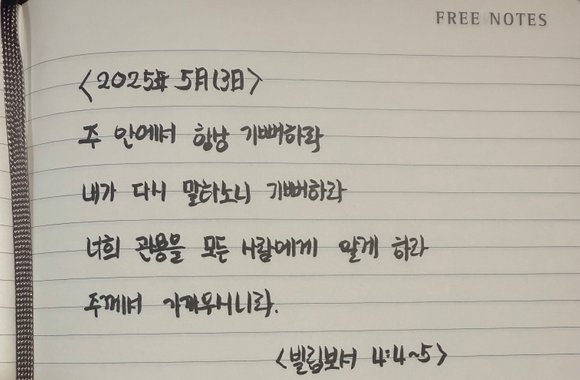 FREE NOTES
<2025年 5月13日>
주 안에서 항상 기뻐하라
내가 다시 말하노니 기뻐하라
너희 관용을 모든 사람에게 알게 하라
주께서 가까우시니라.
<빌립보서 4:4~5>